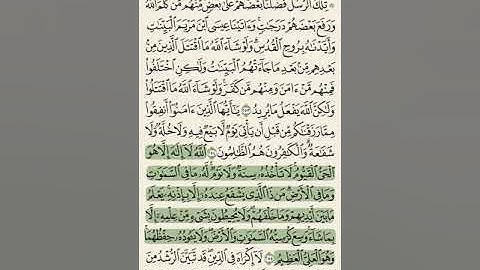 ۞ تِلْكَ ٱلرُّسُلُ فَضَّلْنَا بَعْضَهُمْ عَلَىٰ بَعْضٍ مِّنْهُم مَّن كَلَّمَ ٱللَّهُ
وَرَفَعَ بَعْضَهُمْ دَرَجَٰتٍ وَءَاتَيْنَا عِيسَى ٱبْنَ مَرْيَمَ ٱلْبَيِّنَٰتِ
وَأَيَّدْنَٰهُ بِرُوحِ ٱلْقُدُسِ وَلَوْ شَآءَ ٱللَّهُ مَا ٱقْتَتَلَ ٱلَّذِينَ مِنۢ
بَعْدِهِم مِّنۢ بَعْدِ مَا جَآءَتْهُمُ ٱلْبَيِّنَٰتُ وَلَٰكِنِ ٱخْتَلَفُوا۟
فَمِنْهُم مَّنْ ءَامَنَ وَمِنْهُم مَّن كَفَرَ وَلَوْ شَآءَ ٱللَّهُ مَا ٱقْتَتَلُوا۟
وَلَٰكِنَّ ٱللَّهَ يَفْعَلُ مَا يُرِيدُ ٢٥٣ يَٰٓأَيُّهَا ٱلَّذِينَ ءَامَنُوٓا۟ أَنفِقُوا۟
مِمَّا رَزَقْنَٰكُم مِّن قَبْلِ أَن يَأْتِىَ يَوْمٌ لَّا بَيْعٌ فِيهِ وَلَا خُلَّةٌ وَلَا
شَفَٰعَةٌ وَٱلْكَٰفِرُونَ هُمُ ٱلظَّٰلِمُونَ ٢٥٤ ٱللَّهُ لَآ إِلَٰهَ إِلَّا هُوَ
ٱلْحَىُّ ٱلْقَيُّومُ لَا تَأْخُذُهُۥ سِنَةٌ وَلَا نَوْمٌ لَّهُۥ مَا فِى ٱلسَّمَٰوَٰتِ
وَمَا فِى ٱلْأَرْضِ مَن ذَا ٱلَّذِى يَشْفَعُ عِندَهُۥٓ إِلَّا بِإِذْنِهِۦ يَعْلَمُ
مَا بَيْنَ أَيْدِيهِمْ وَمَا خَلْفَهُمْ وَلَا يُحِيطُونَ بِشَىْءٍ مِّنْ عِلْمِهِۦٓ إِلَّا
بِمَا شَآءَ وَسِعَ كُرْسِيُّهُ ٱلسَّمَٰوَٰتِ وَٱلْأَرْضَ وَلَا يَـُٔودُهُۥ حِفْظُهُمَا
وَهُوَ ٱلْعَلِىُّ ٱلْعَظِيمُ ٢٥٥ لَآ إِكْرَاهَ فِى ٱلدِّينِ قَد تَّبَيَّنَ ٱلرُّشْدُ مِنَ